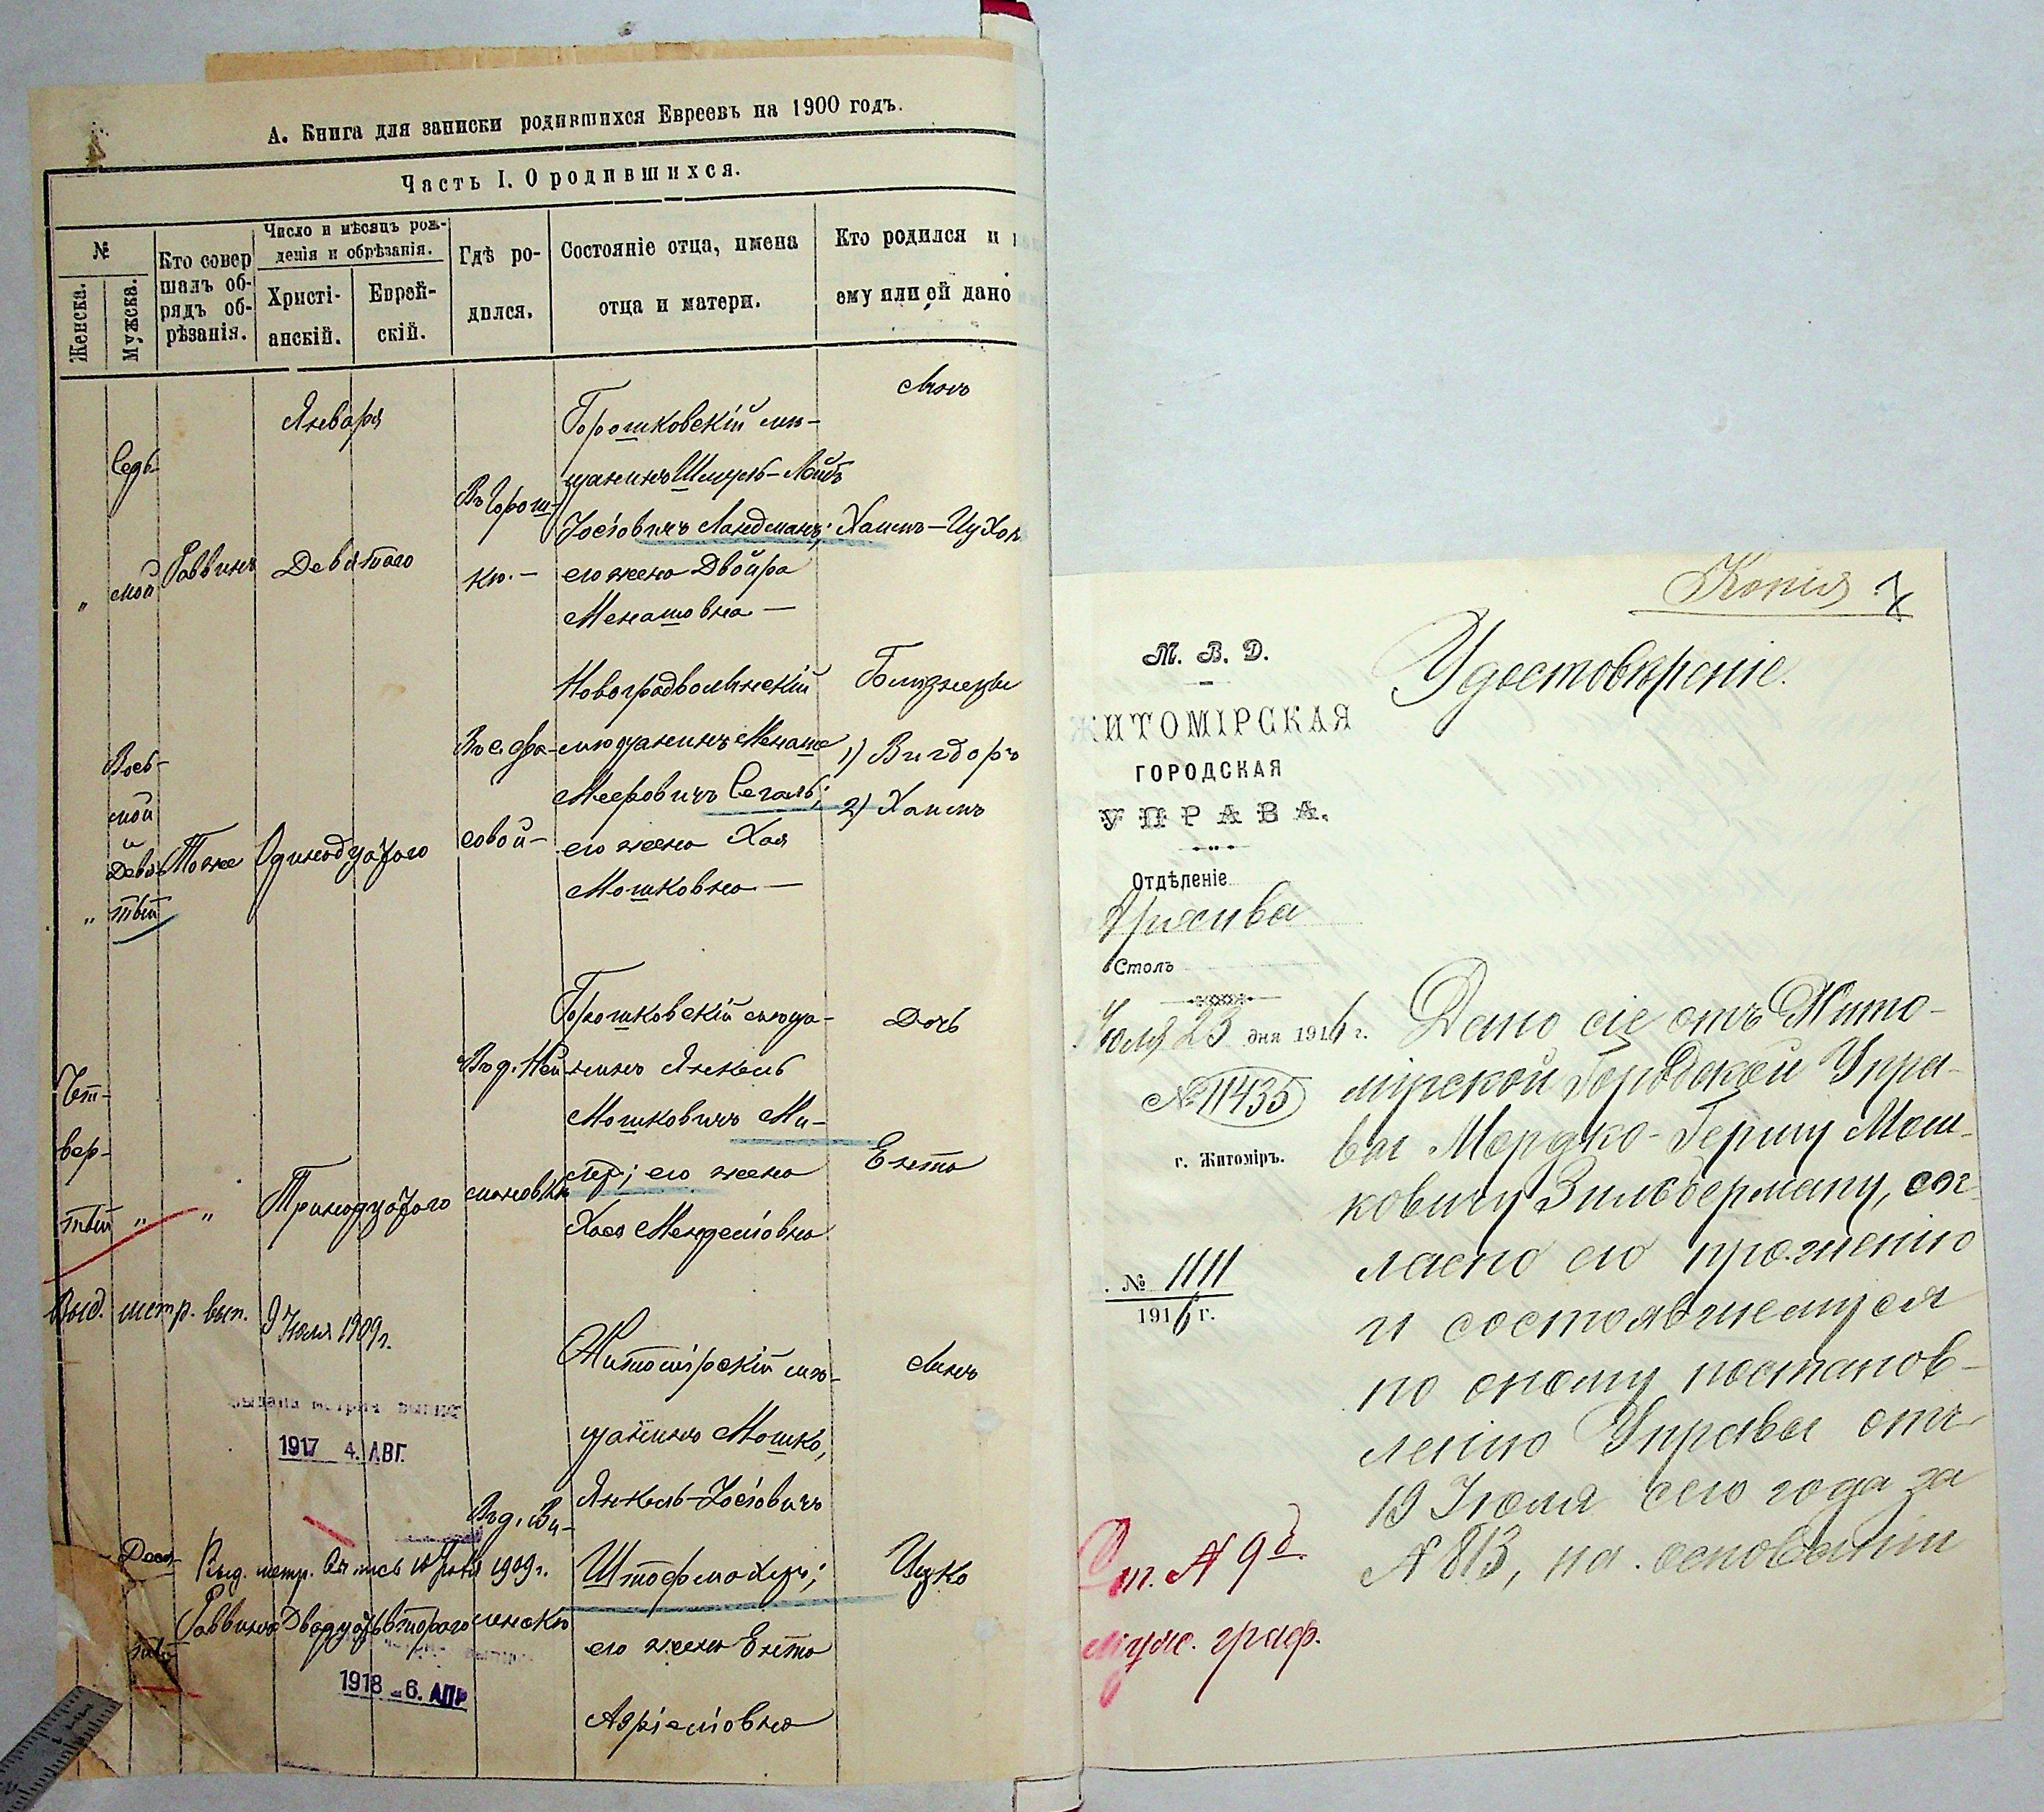 А. Книга для записки родившихся Евреевъ на 1900 годъ.
Часть I. О родившихся.
№
Женска.
Мужска.
Кто совер
шалъ об-
рядъ об-
рѣзанія.
Число и мѣсяцъ рож-
денія и обрѣзанія.
Христі-
анскій.
Еврей-
скій.
Гдѣ ро-
дился.
Состояніе отца, имена
отца и матери.
Кто родился и
ему или ей дано
"
Седь-
мой
Раввинъ
Января
Девятаго
Въ Горош-
кѣ.-
Горошковскій мѣ-
щанинъ Шмуль-Лейбъ
Іосіовичъ Ландманъ;
его жена Двойра
Менашовна -
Сынъ
Хаимъ-Ицхок
"
Вось-
мой
и
Девя-
тый
Тоже
Одинадцатаго
Въ с. Фра-
совой-
Новоградволынскій
мѣщанинъ Менаше
Меeровичъ Сегаль;
его жена Хая
Мошковна -
Близнецы
1) Вигдоръ
2) Хаимъ
Чет-
вер-
тый
"
"
Тринадцатаго
Въ д. Ней-
мановкѣ
Горошковскій мѣща-
нинъ Янкель
Мошковичъ Ми-
леръ; его жена
Хася Менделіовна
Дочь
Ента
Выд. метр. вып. 9 Юля 1909 г.
1917 4. АВГ.
Деся-
тый
Выд. метр. Выпись 10 Юля 1909 г.
Раввинъ
Двадцать втораго
Житомірскій мѣ-
щанинъ Мошко,
Янкель-Іосіовичъ
Штофмахеръ;
его жена Ента
Азріеліовна
Сынъ
Ицко
1918 6. АПР
Копія
7
М. В. Д.
ЖИТОМІРСКАЯ
ГОРОДСКАЯ
УПРАВА.
Отдѣленіе
Архива
Столъ
Іюля 23 дня 1916 г.
№ 11435
г. Житоміръ.
№ 1111
1916 г.
От. № 9й.
муж. граф.
Удостовѣреніе.
Дано сіе отъ Жито-
мірской Городской Упра-
вы Мордко-Гершу Мош-
ковичу Зильберману, сог-
ласно его прошенію
и состоявшемуся
по оному постанов-
ленію Управы отъ
19 Іюля сего года за
№ 813, на основаніи